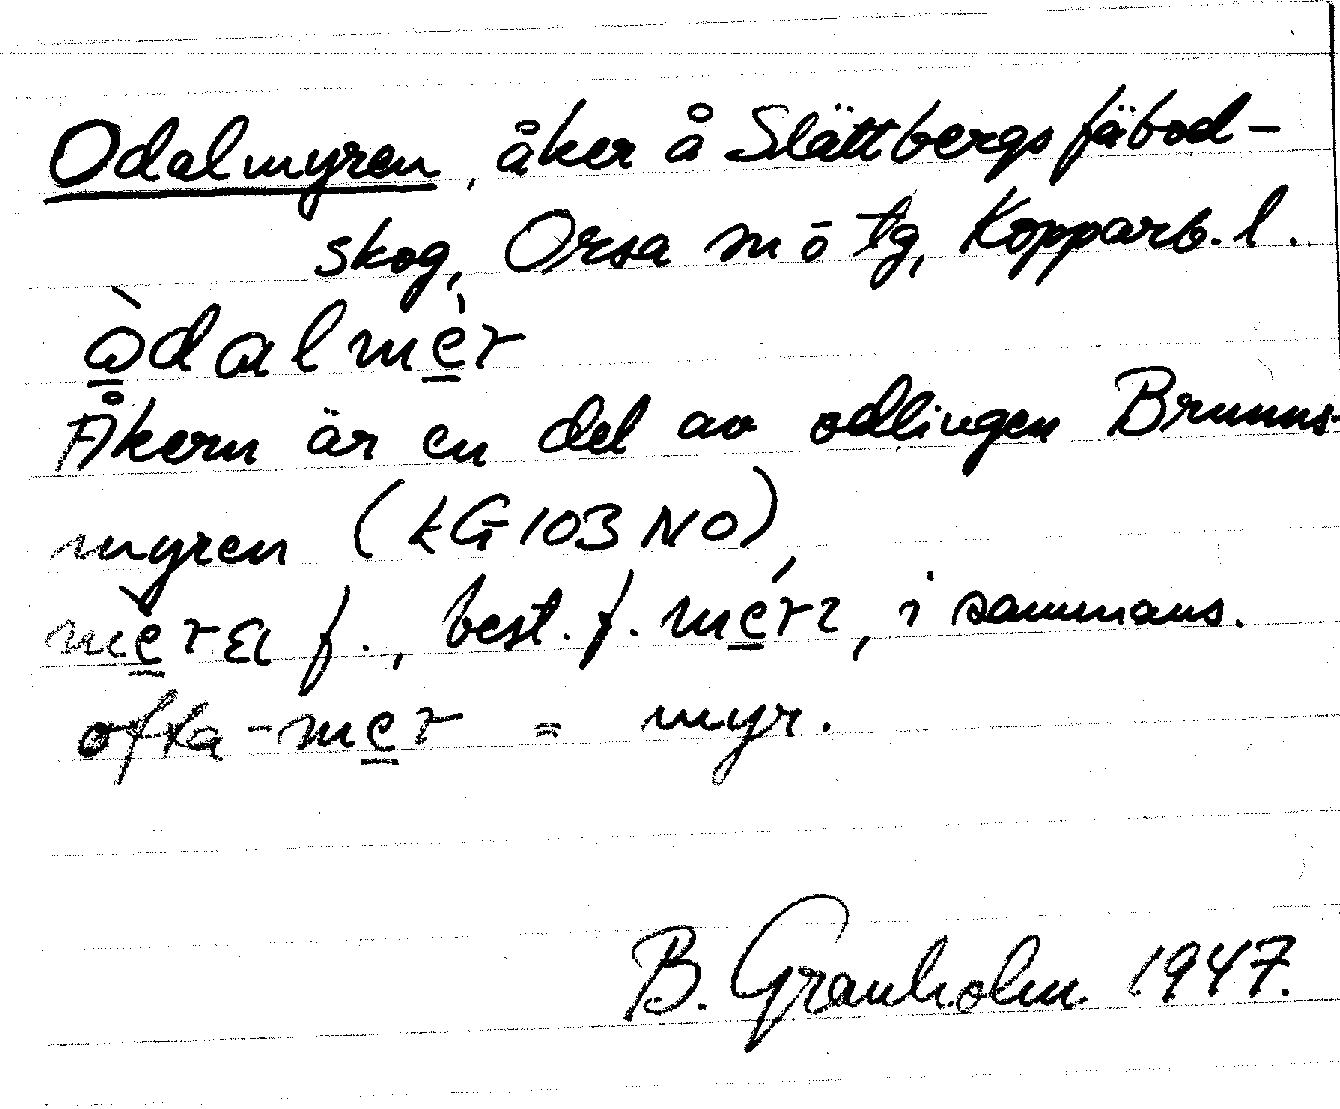 Odalmyren, åker å Slättbergs fäbod-
skog, Orsa sn ö tg, Kopparb. l.
òdalmèr
Åkern är en del av odlingen Brunns-
myren (kG103 NO),
f., best. f. i sammans.
ofta -mer = myr.
B. Granholm 1947.